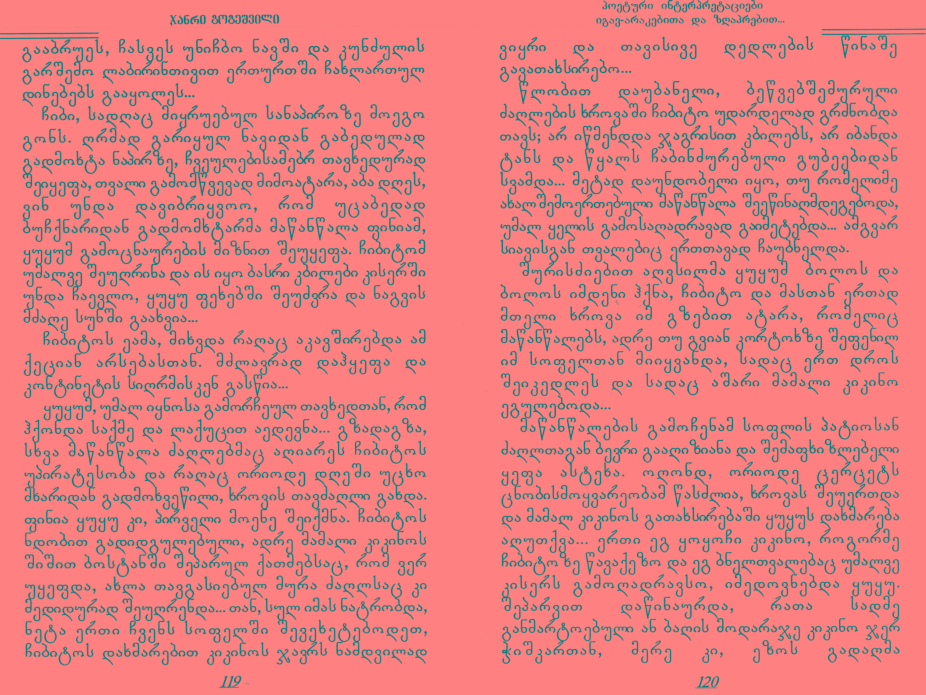 ჯანრი გოგეშვილი
გააბრუეს, ჩასვეს უნიჩბო ნავში და კუნძულის
გარშემო ლაბირინთივით ერთურთში ჩახლართულ
დინებებს გააყოლეს...
ჩიბი, სადღაც მიყრუებულ სანაპიროზე მოეგო
გონს. ღრმად გარიყულ ნავიდან გაბედულად
გადმოხტა ნაპირზე, ჩვეულებისამებრ თავხედურად
შეიყეფა, თვალი გამომწვევად მიმოატარა, აბა დღეს,
ვინ უნდა დავიბრიყვოო, რომ უცაბედად
ბუჩქნარიდან გადმომხტარმა მაწანწალა ფინიამ,
ყუყუმ გამოცნაურების მიზნით შეუყეფა. ჩიბიტომ
უმალვე შეუღრინა და ის იყო ბასრი კბილები კისერში
უნდა ჩაევლო, ყუყუ ფეხებში შეუძვრა და ნაგვის
მძაღე სუნში გაახვია...
ჩიბიტოს ეამა, მიხვდა რაღაც აკავშირებდა ამ
ქეციან არსებასთან. მძლავრად დაჰყეფა და
კონტინეტის სიღრმისკენ გასწია...
ყუყუმ, უმალ იყნოსა გამორჩეულ თავხედთან, რომ
ჰქონდა საქმე და ლაქუცით აედევნა... გზადაგზა,
სხვა მაწანწალა ძაღლებმაც აღიარეს ჩიბიტოს
უპირატესობა და რაღაც ორიოდე დღეში უცხო
მხარიდან გადმოხვეწილი, ხროვის თავმაღლი გახდა.
ფინია ყუყუ კი, პირველი მოენე შეიქმნა. ჩიბიტოს
ნდობით გადიდგულებული, ადრე მამალი კიკინოს
შიშით ბოსტანში შეპარულ ქათმებსაც, რომ ვერ
უყეფდა, ახლა თავგასიებულ მურა ძაღლსაც კი
მედიდურად შეუღრენდა... თან, სულ იმას ნატრობდა,
ნეტა ერთი ჩვენს სოფელში შევეხეტებოდეთ,
ჩიბიტოს დახმარებით კიკინოს ჯავრს ნამდვილად
119
პოეტური ინტერპრეტაციები
იგავ-არაკებითა და ზღაპრებით...
ვიყრი და თავისივე დედლების წინაშე
გავათახსირებო...
წლობით დაუბანელი, ბეწვებშემურული
ძაღლების ხროვაში ჩიბიტო უდარდელად გრძნობდა
თავს; არ იწმენდდა ჯაგრისით კბილებს, არ იბანდა
ტანს და წყალს ჩაბინძურებული გუბეებიდან
სვამდა... მეტად დაუნდობელი იყო, თუ რომელიმე
ახალშემოერთებული მაწანწალა შეეწინაღმდეგებოდა,
უმალ ყელის გამოსაღადრავად გაიმეტებდა... ამგვარ
სიავისგან თვალებიც ერთთავად ჩაუბნელდა.
შურისძიებით აღვსილმა ყუყუმ ბოლოს და
ბოლოს იმდენი ჰქნა, ჩიბიტო და მასთან ერთად
მთელი ხროვა იმ გზებით ატარა, რომელიც
მაწანწალებს, ადრე თუ გვიან კორტოხზე შეფენილ
იმ სოფელთან მიიყვანდა, სადაც ერთ დროს
შეიკედლეს და სადაც აშარი მამალი კიკინო
ეგულებოდა...
მაწანწალების გამოჩენამ სოფლის პატიოსან
ძაღლთაგან ბევრი გააღიზიანა და შემაფხიზლებელი
ყეფა ასტეხა. ოღონდ, ორიოდე ცერცეტს
ცნობისმოყვარეობამ წასძლია, ხროვას შეუერთდა
და მამალ კიკინოს გათახსირებაში ყუყუს დახმარება
აღუთქვა... ერთი ეგ ყოყოჩი კიკინო, როგორმე
ჩიბიტოზე წავაქეზო და ეგ ბნელთვალებაც უმალვე
კისერს გამოღადრავსო, იმედოვნებდა ყუყუ.
შეპარვით დაწინაურდა, რათა სადმე
განმარტოებული ან ბაღის მოდარაჯე კიკინო ჯერ
ჭიშკართან, მერე კი, ეზოს გადაღმა
120